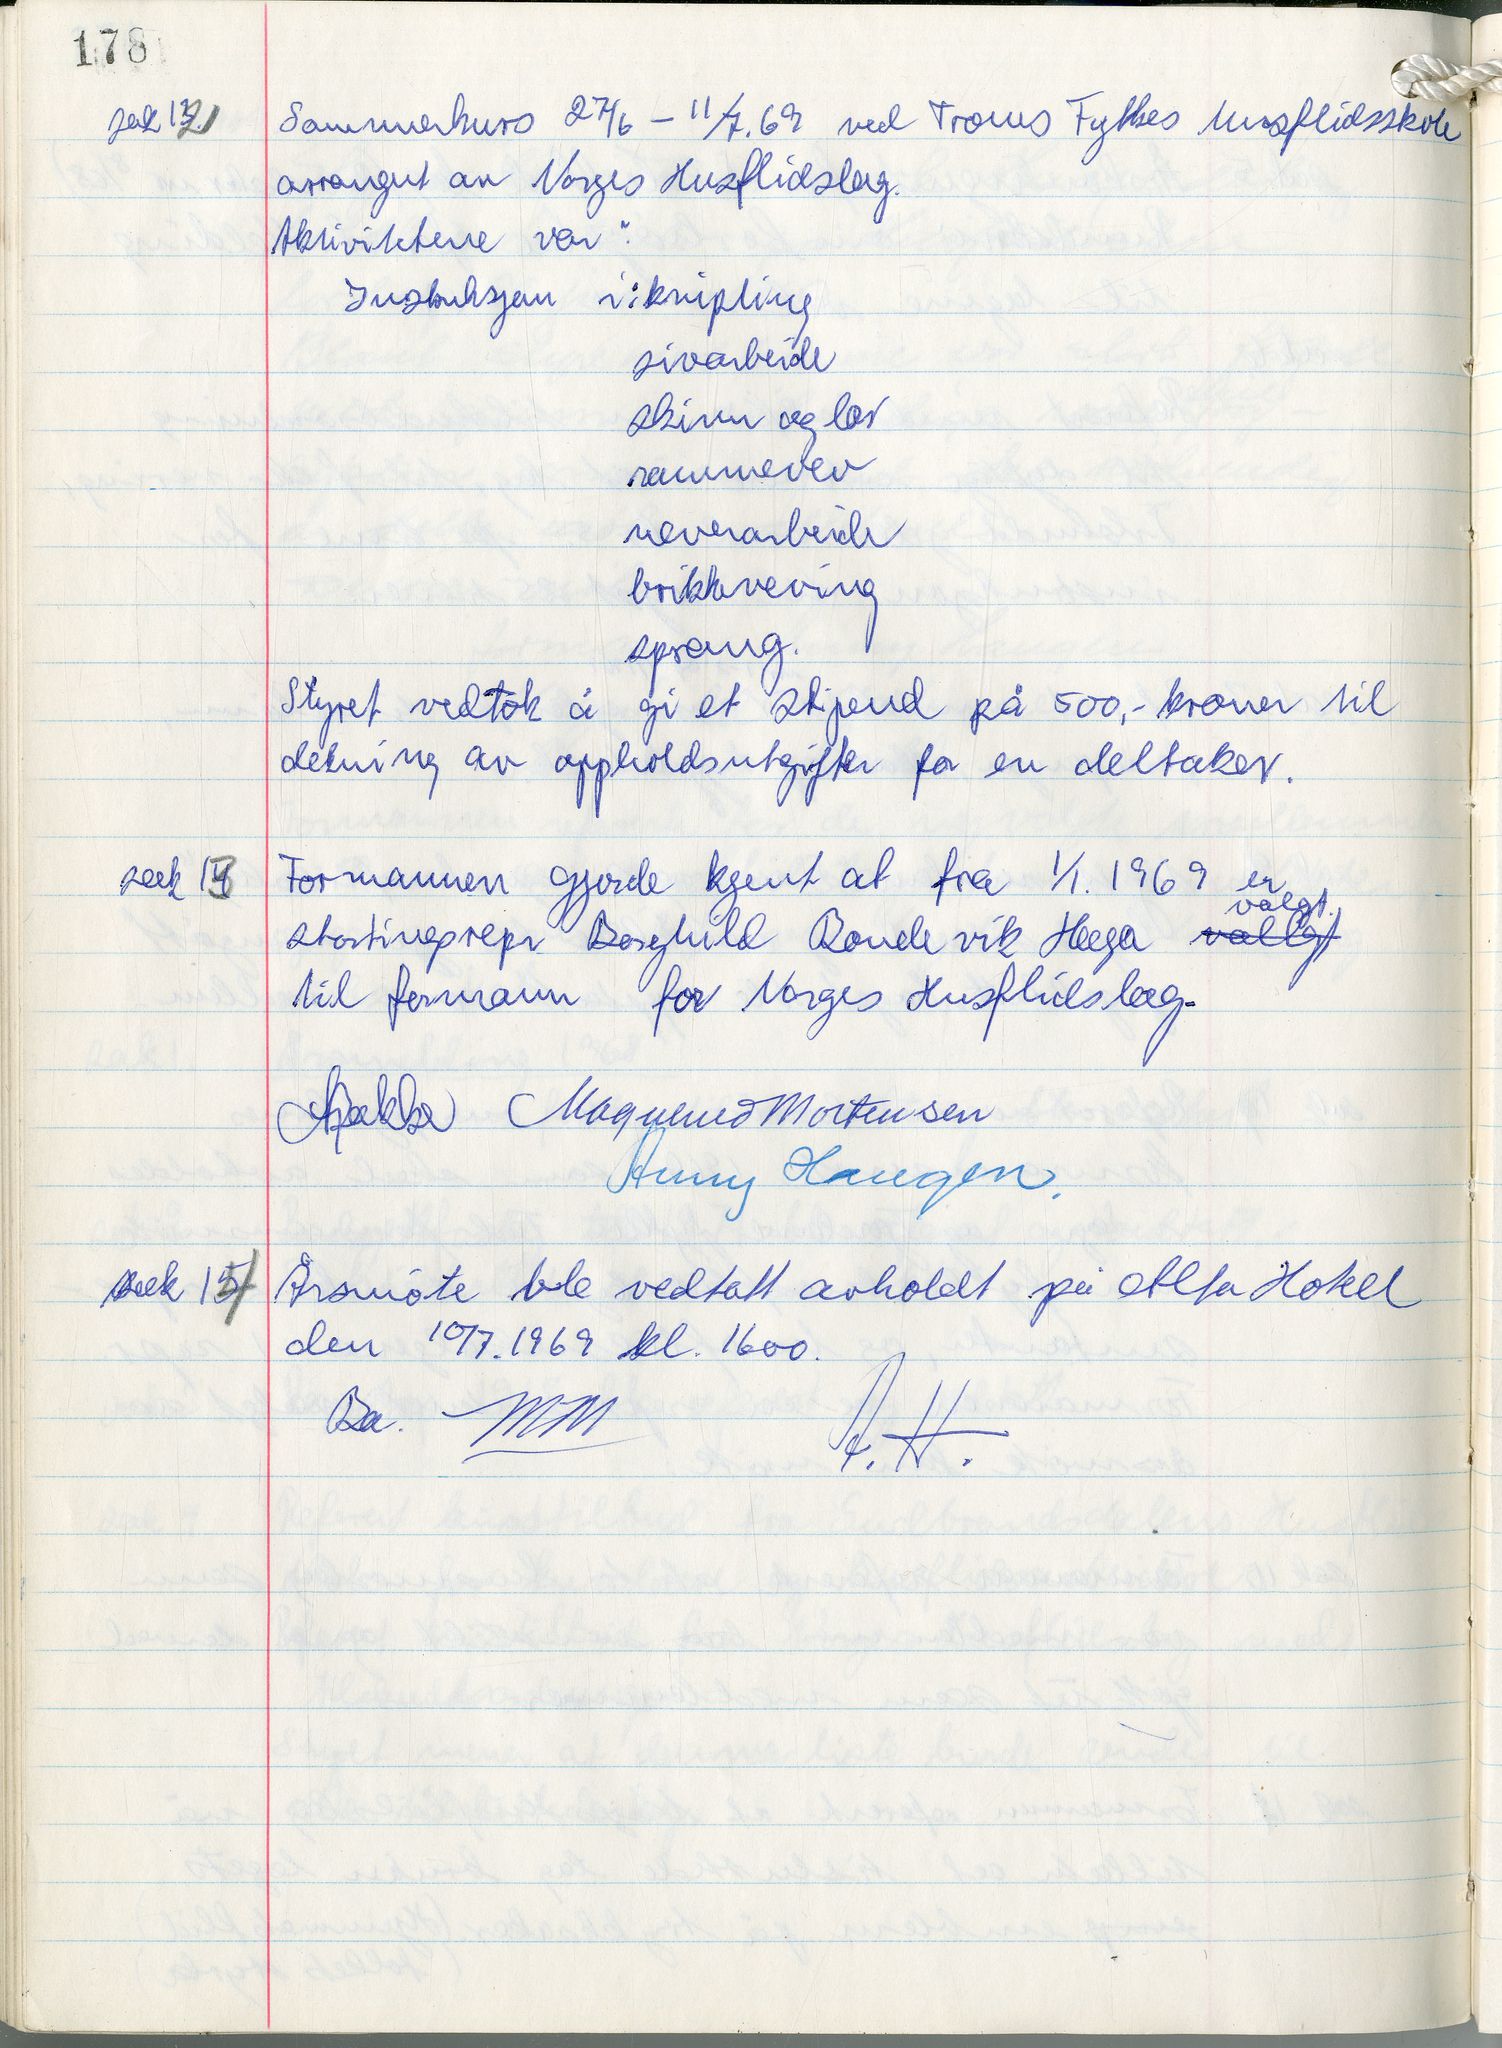 178
sak 12 Sommerkurs 27/6 – 11/7.69 ved Troms Fylkes husflidsskole
arrangert av Norges Husflidslag.
Aktivitetene var:
Instruksjon i: knipling
sivarbeide
skinn og lær
rammevev
neverarbeide
brikkeveving
sprang.
Styret vedtok å gi et stipend på 500,- kroner til
dekning av oppholdsutgifter for en deltaker.
sak 13 Formannen gjorde kjent at fra 1/1. 1969 er
valgt.
stortingsrepr Borghild Bondevik Haga vallgt
til formann for Norges Husflidslag.
Magnund Mortensen
Anny Haugen.
sak 14 Årsmøte ble vedtatt avholdt på Alta Hotel
den 10/7.1969 kl. 1600.
Ba. MM A.H.